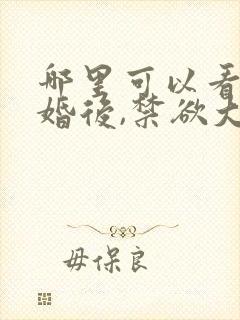 哪里可以看
婚後,禁欲大
毋保良